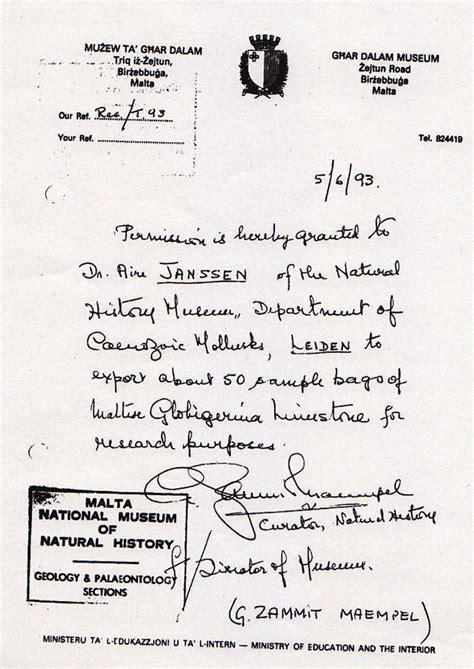 MUŻEW TA' GĦAR DALAM
Triq iż-Żejtun,
Birżebbuġa,
Malta
GĦAR DALAM MUSEUM
Żejtun Road
Birżebbuġa
Malta
Our Ref. Res/T.93
Your Ref.
Tel. 824419
5/6/93.
Permission is hereby granted to
Dr. Aire JANSSEN of the Natural
History Museum, Department of
Caenozoic Mollusks, LEIDEN to
export about 50 sample bags of
Maltese Globigerina Limestone for
research purposes.
Curator, Natural History
f/ Director of Museums.
(G. ZAMMIT MAEMPEL)
MALTA
NATIONAL MUSEUM
OF
NATURAL HISTORY
GEOLOGY & PALAEONTOLOGY
SECTIONS
MINISTERU TA' L-EDUKAZZJONI U TA' L-INTERN — MINISTRY OF EDUCATION AND THE INTERIOR